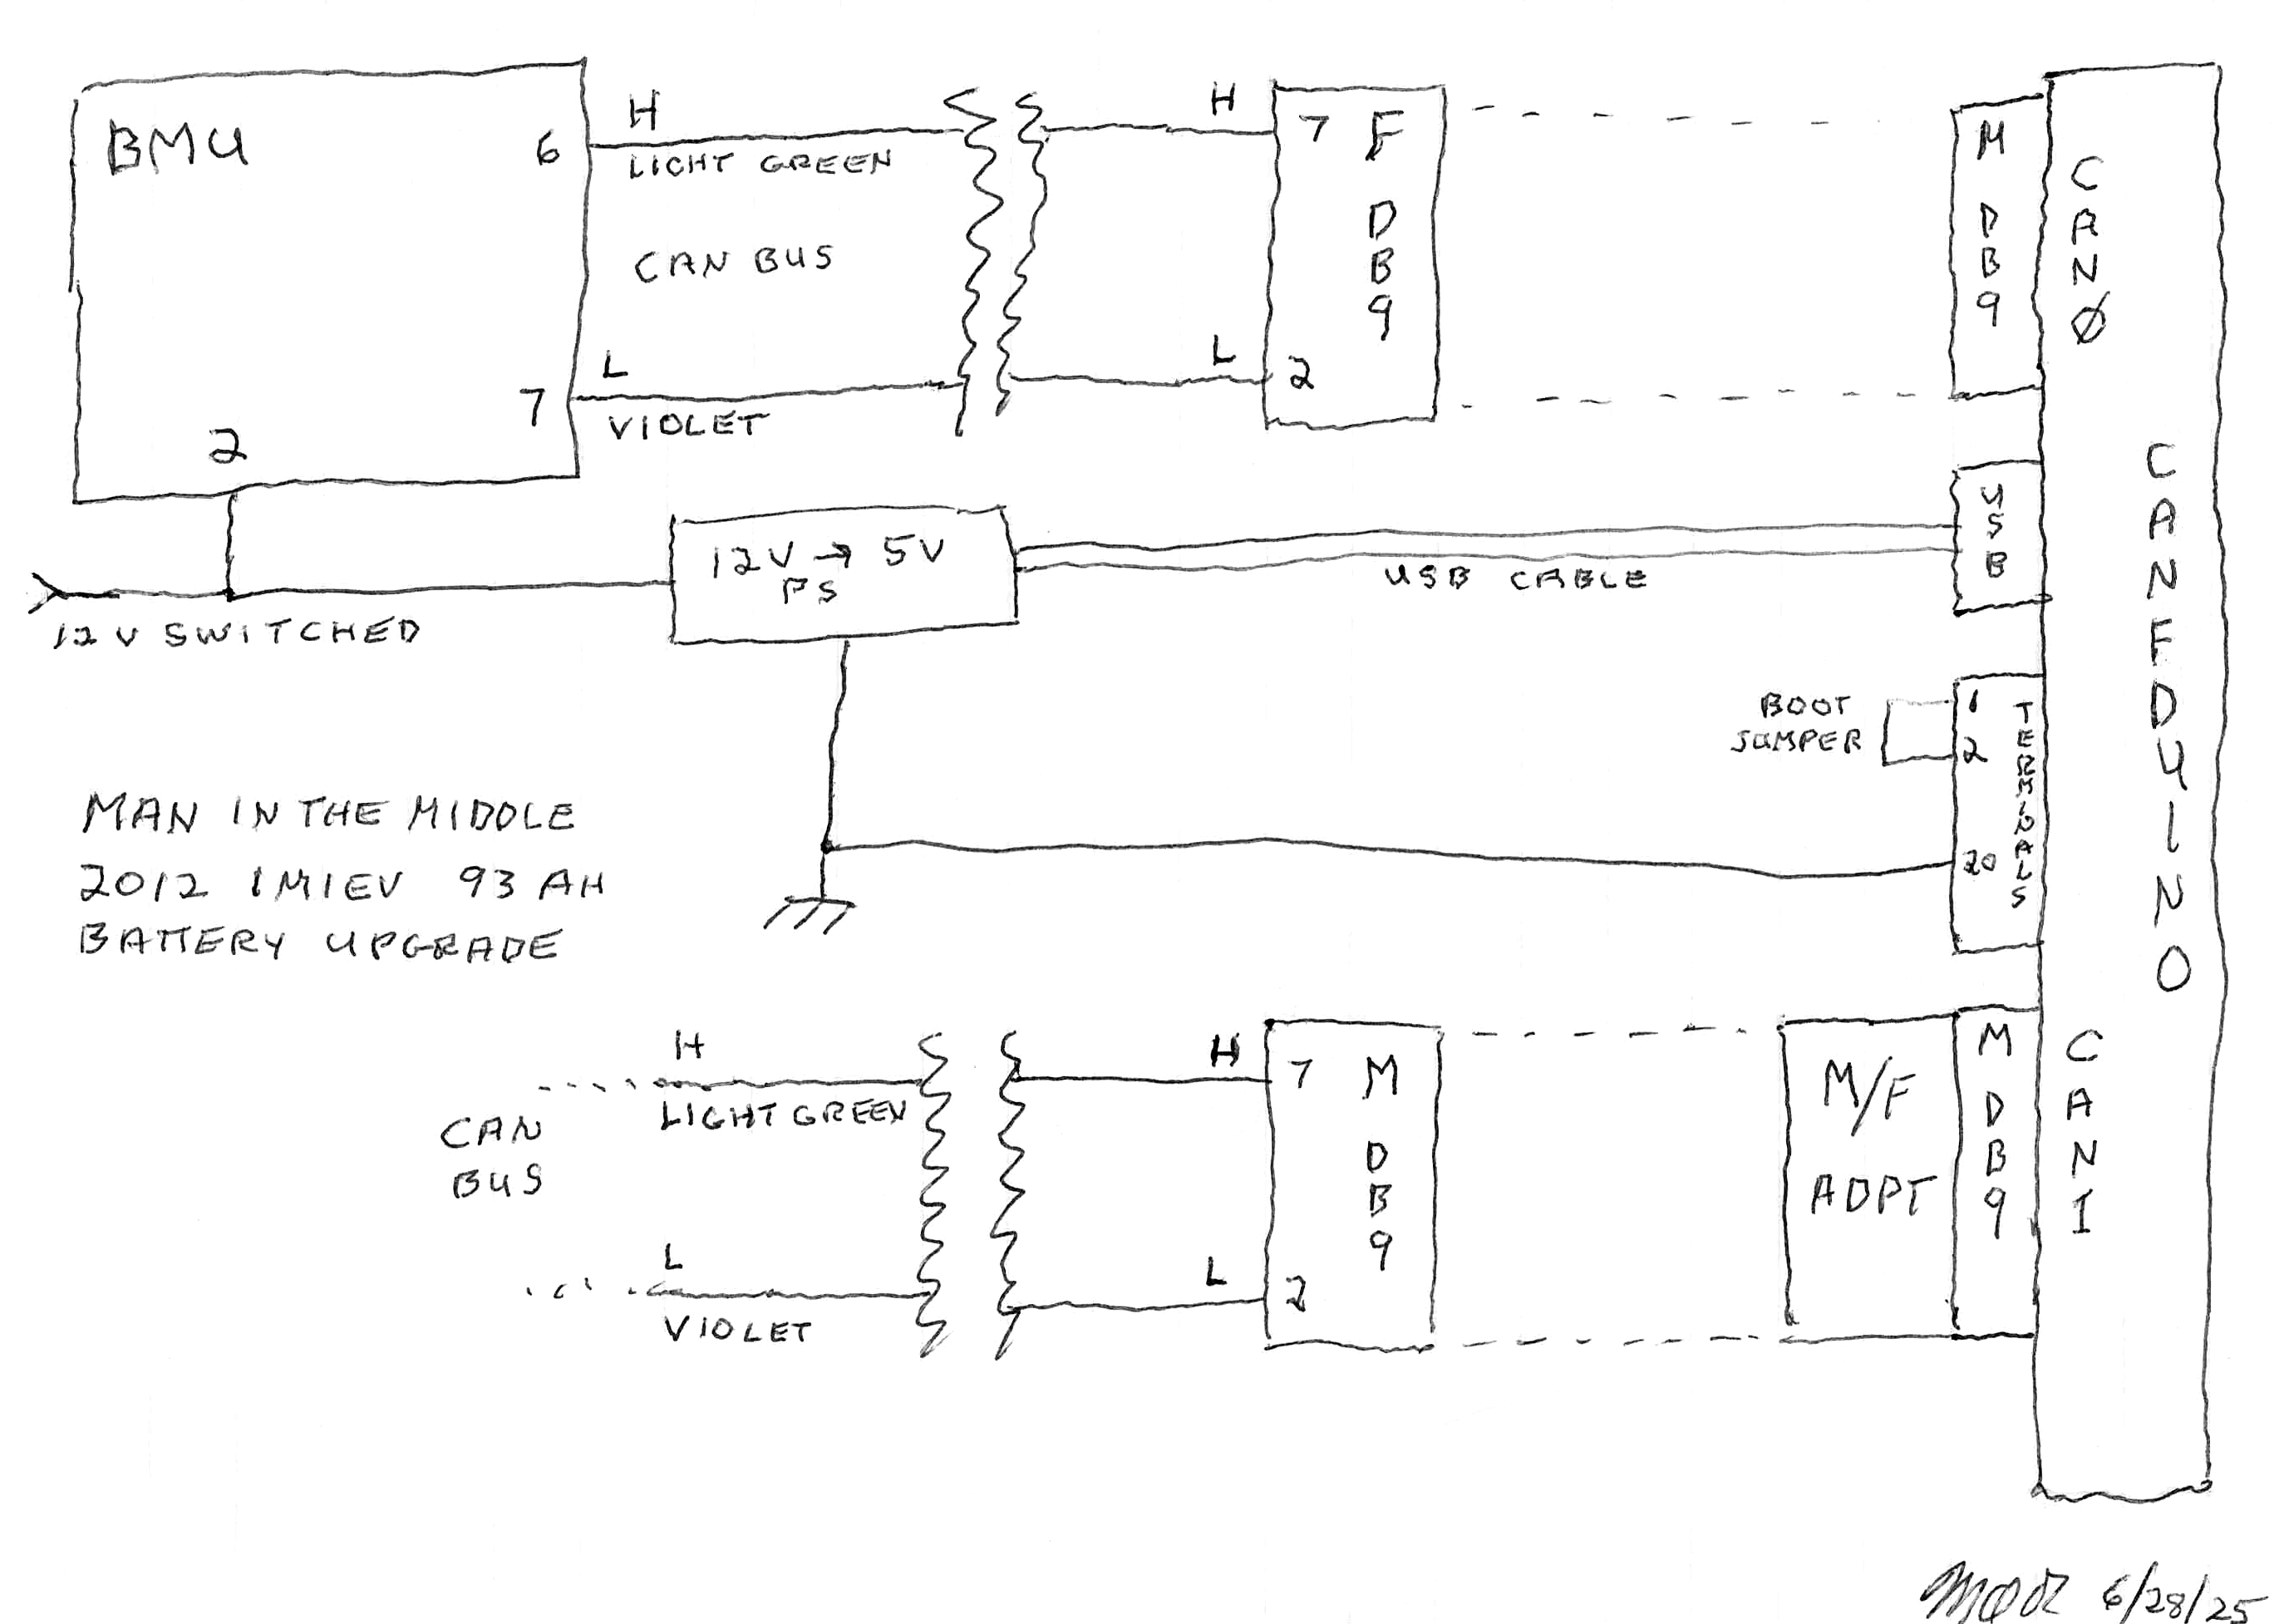 BMU
6
H
LIGHT GREEN
CAN BUS
7
L
VIOLET
2
12V SWITCHED
12V → 5V
PS
USB CABLE
H
7
F
DB9
L
2
M
DB9
CANØ
USB
CANFDUINO
BOOT
JUMPER
1
2
20
TERMINALS
MAN IN THE MIDDLE
2012 IMIEV 93 AH
BATTERY UPGRADE
CAN
BUS
H
LIGHT GREEN
L
VIOLET
H
7
M
DB9
L
2
M/F
ADPT
M
DB9
CAN1
6/28/25